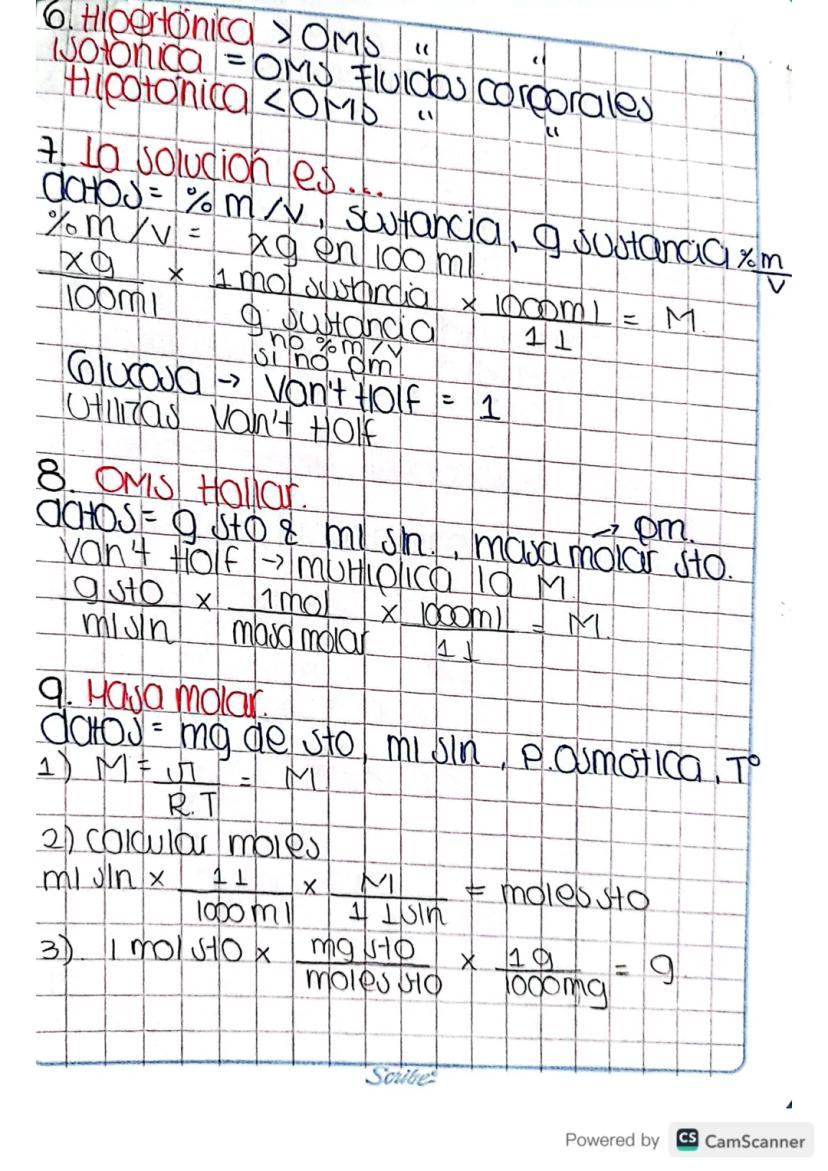 6. Hipertónica > OMS " "
Isotónica = OMS Fluidos corporales
Hipotónica < OMS " "
7. La solución es...
datos = % m/v, sustancia, g sustancia % m/v
% m/v = xg en 100 ml
xg / 100ml × 1 mol sustancia / g sustancia × 1000ml / 1L = M.
no % m/v
si no pm
Glucosa → Van't Hoff = 1
Utilizas Van't Hoff
8. OMS Hallar.
datos = g sto & ml sln., masa molar sto. → pm.
Van't Hoff → multiplica la M.
g sto / ml sln × 1mol / masa molar × 1000ml / 1L = M.
9. Masa molar.
datos = mg de sto, ml sln, P. osmótica, T°
1) M = π / R.T = M
2) calcular moles
ml sln × 1L / 1000ml × M / 1 L sln = moles sto
3) 1 mol sto × mg sto / moles sto × 1g / 1000mg = g.
Scribe
Powered by CS CamScanner